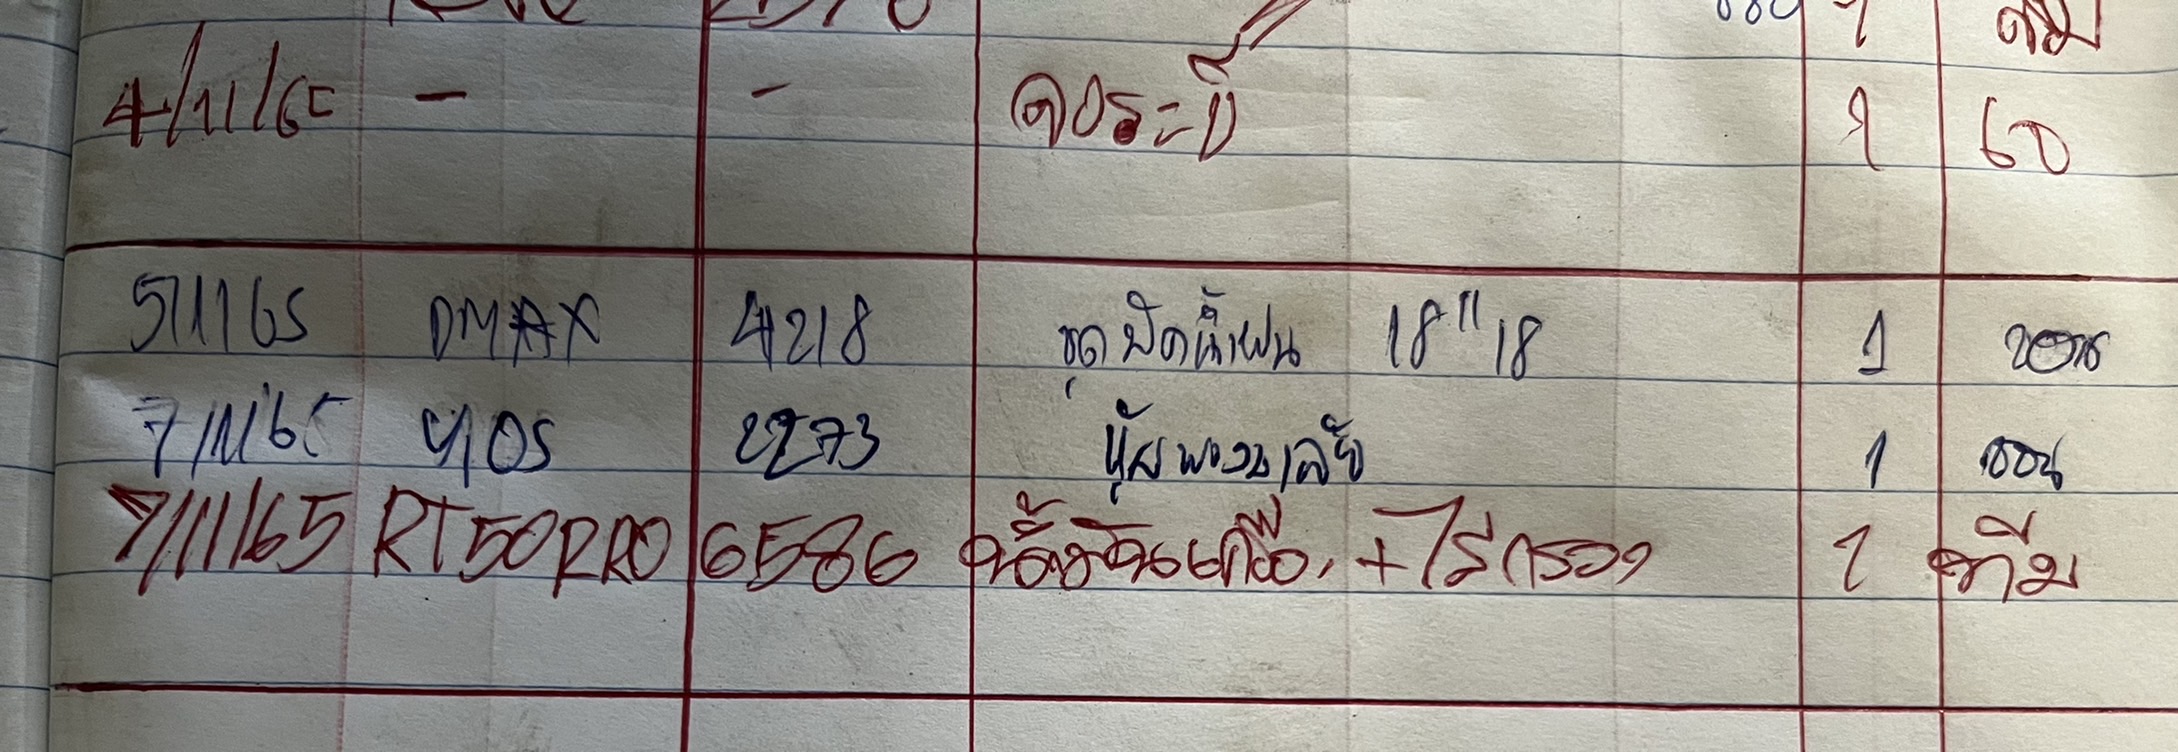 4/11/65 - - จารบี 1 60
5/11/65 DMAX 4218 ชุดปัดน้ำฝน 18" 18 1
7/11/65 VIOS 2273 หุ้มพวงมาลัย 1
7/11/65 RT50PRO 6586 น้ำมันเครื่อง + ไส้กรอง 1 ทีม